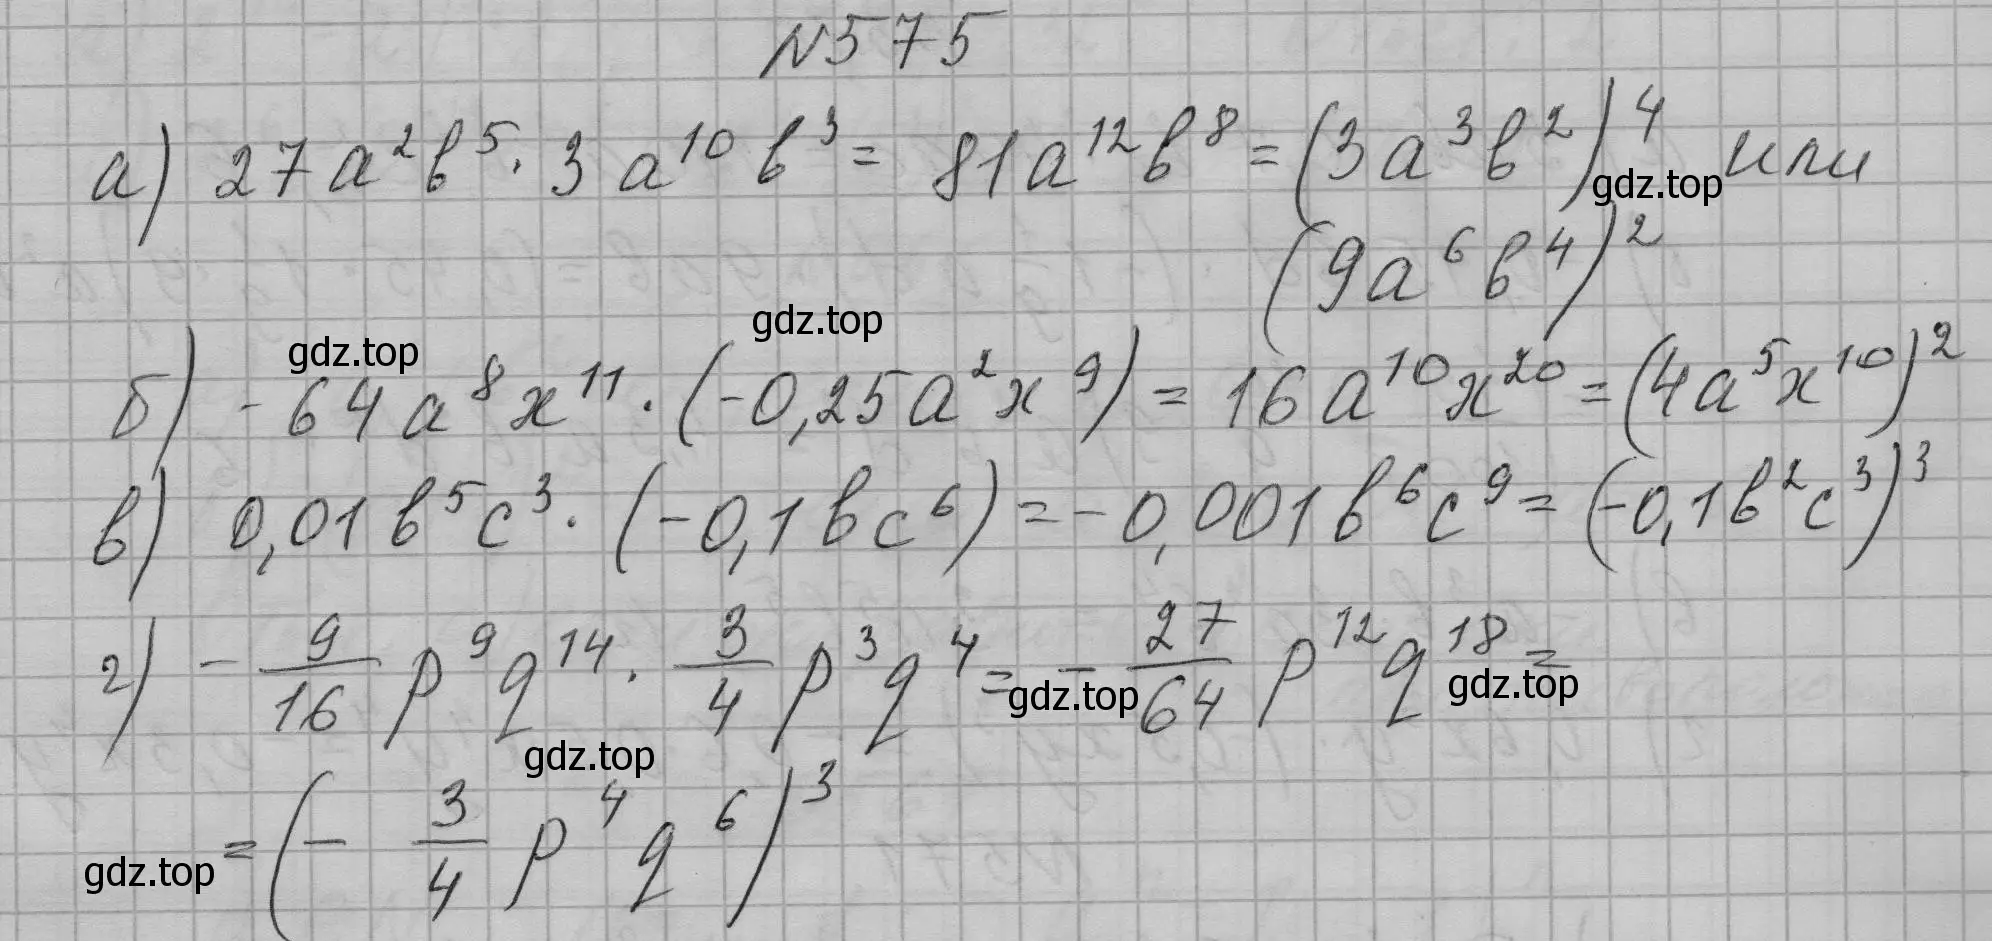 №575
а) 27a²b⁵ · 3a¹⁰b³ = 81a¹²b⁸ = (3a³b²)⁴ или
gdz.top
(9a⁶b⁴)²
gdz.top
gdz.top
б) -64a⁸x¹¹ · (-0,25a²x⁹) = 16a¹⁰x²⁰ = (4a⁵x¹⁰)²
в) 0,01b⁵c³ · (-0,1bc⁶) = -0,001b⁶c⁹ = (-0,1b²c³)³
г) - 9/16 p⁹q¹⁴ · 3/4 p³q⁴ = - 27/64 p¹²q¹⁸ =
gdz.top
gdz.top
gdz.top
= (- 3/4 p⁴q⁶)³
gdz.top